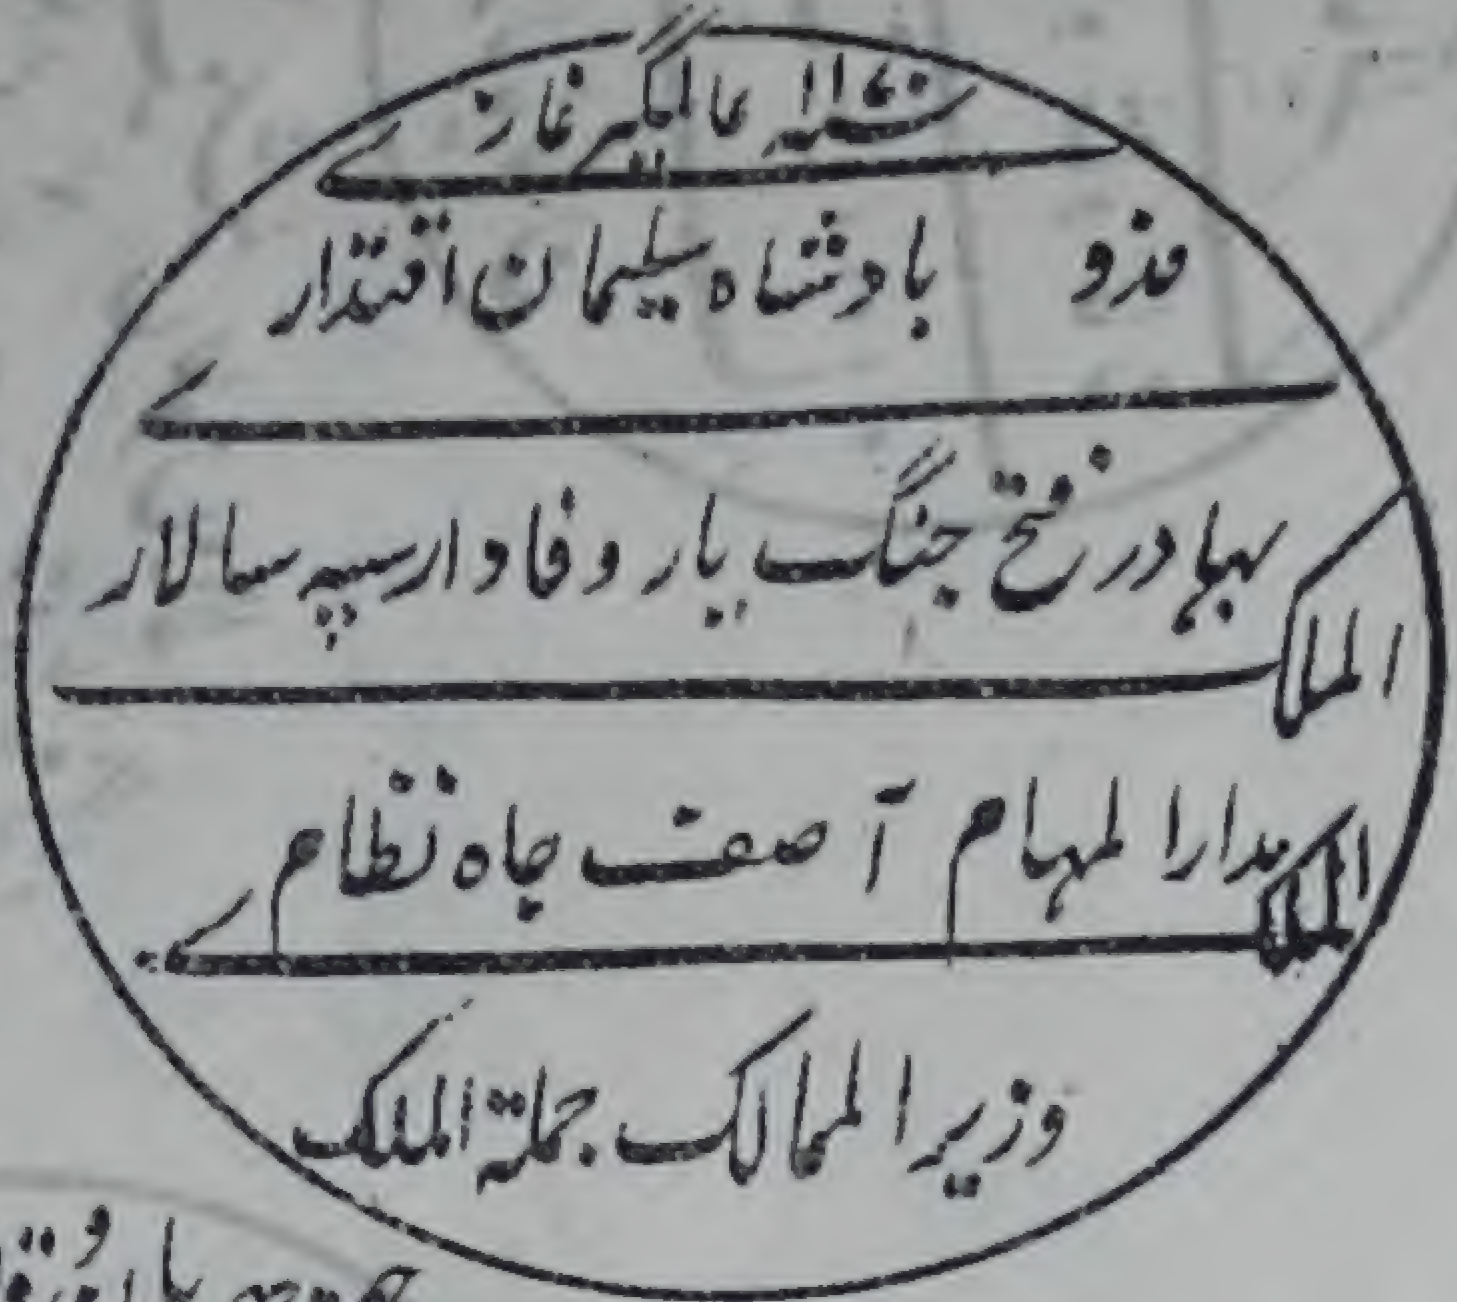 عالمگیر غازے
فدو بادشاہ سلیمان اقتدار
ے
بہادر فتح جنگ یار وفادار سپہ سالار
الملک
مدارالمہام آصف جاہ نظام
ے الملک
وزیرالممالک جملۃ الملک